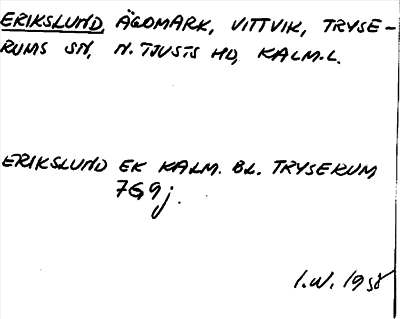 ERIKSLUND, ÄGOMARK, VITTVIK, TRYSE-
RUMS SN, N. TJUSTS HD, KALM.L.
ERIKSLUND EK KALM. BL. TRYSERUM
7G9j.
I.W. 1958